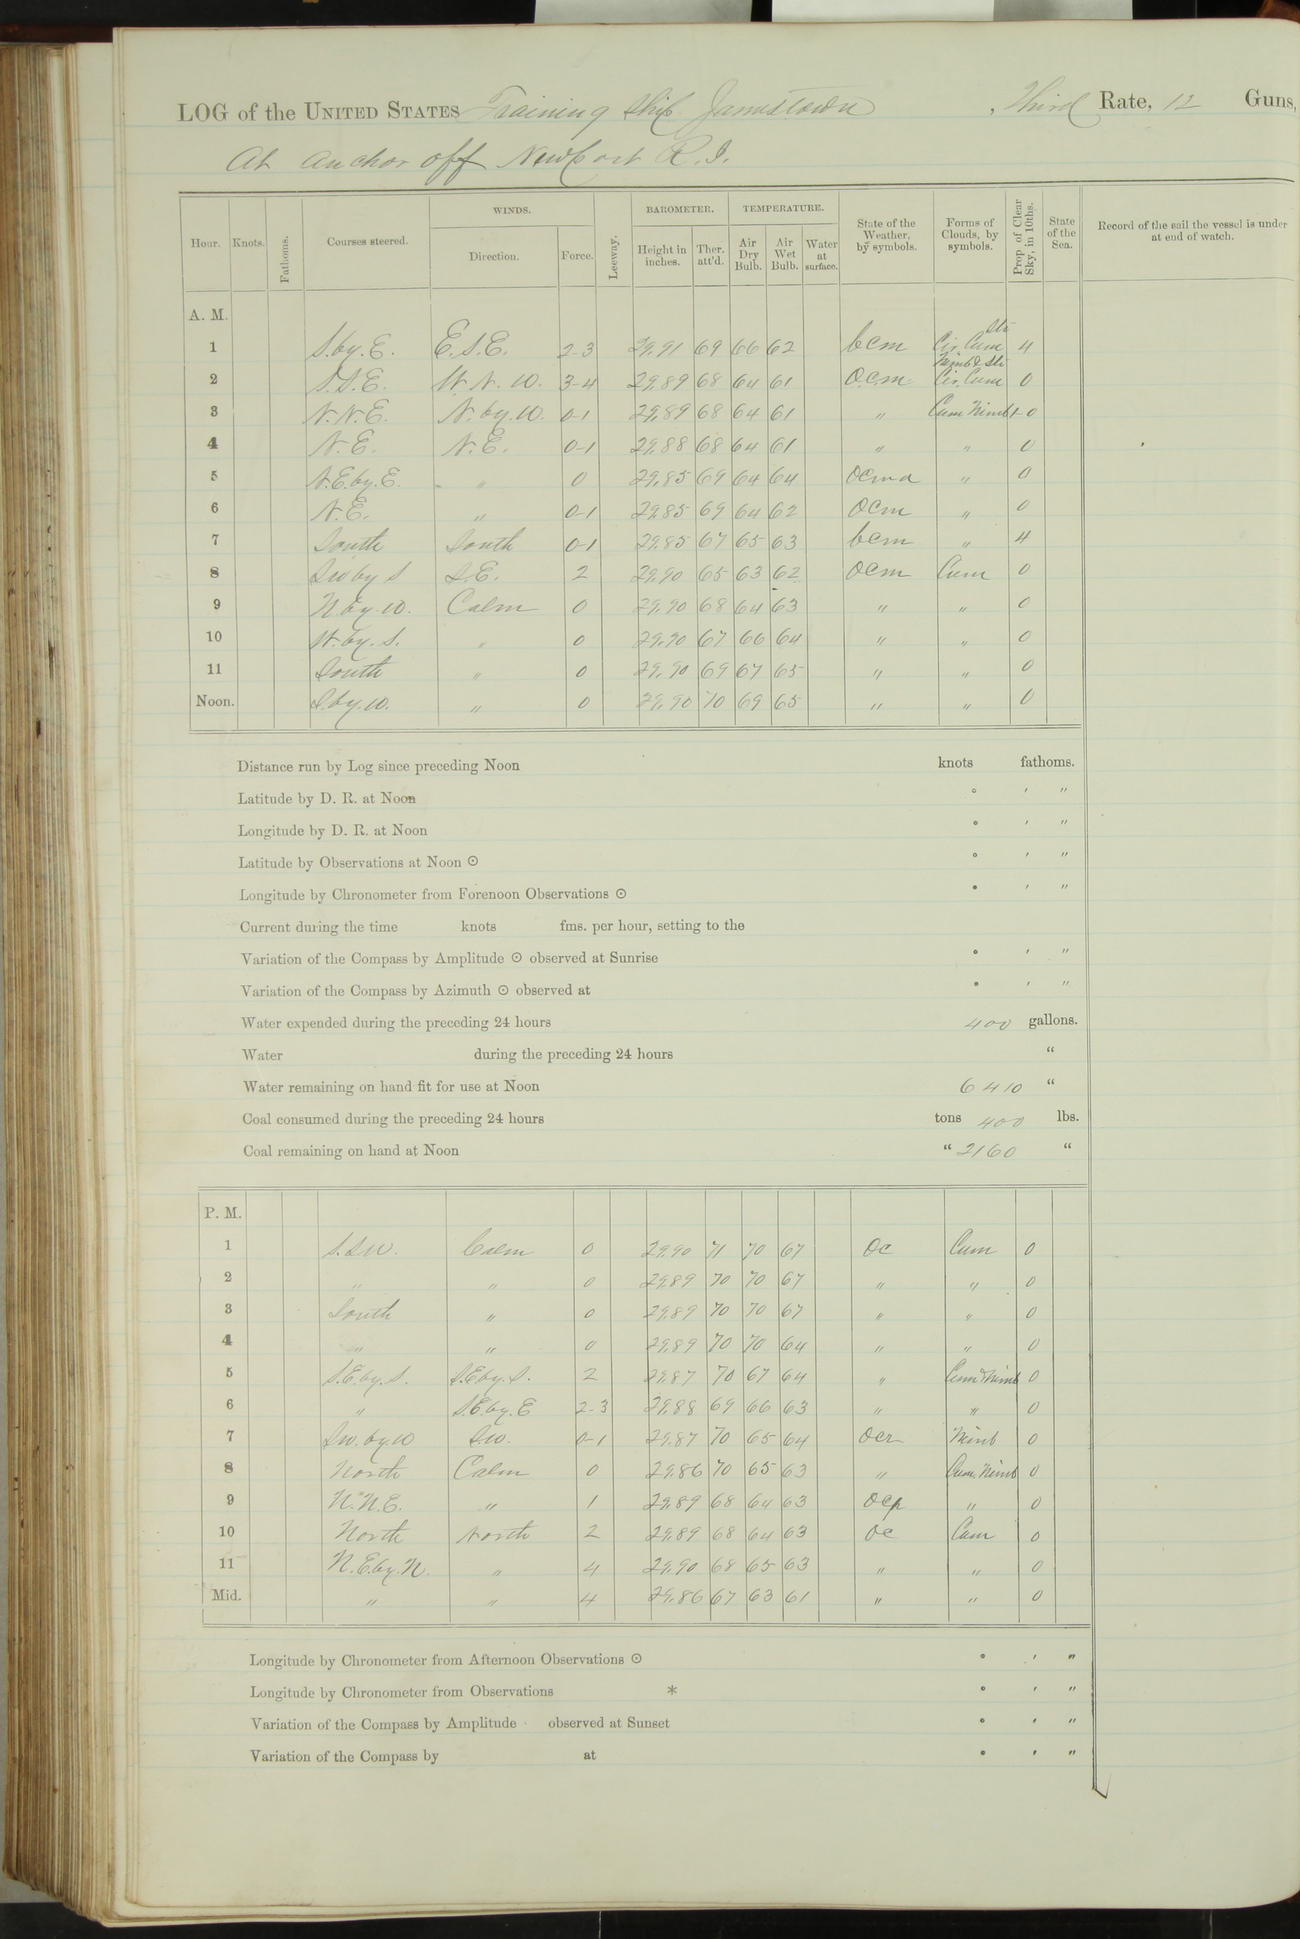 LOG of the UNITED STATES Training Ship Jamestown , Third Rate, 12 Guns,
At anchor off Newport R.I.
Hour. Knots. Fathoms. Courses steered. WINDS. Direction. Force. Leeway. BAROMETER. Height in inches. Ther. att'd. TEMPERATURE. Air Dry Bulb. Air Wet Bulb. Water at surface. State of the Weather, by symbols. Forms of Clouds, by symbols. Prop. of Clear Sky, in 10ths. State of the Sea. Record of the sail the vessel is under at end of watch.
A. M.
1 S. by. E. E.S.E. 2-3 29.91 69 66 62 bcm Cir. Cum Str 4
2 S.S.E. W. N. W. 3-4 29.89 68 64 61 O.c.m. Cir. Cum Nimb & Str 0
3 N.N.E. N. by. W. 0-1 29.89 68 64 61 " Cum Nimb 1-0
4 N.E. N.E. 0-1 29.88 68 64 61 " " 0
5 N.E. by. E. " 0 29.85 69 64 64 Ocmd " 0
6 N.E. " 0-1 29.85 69 64 62 Ocm " 0
7 South South 0-1 29.85 67 65 63 bcm " 4
8 SW by S S.E. 2 29.90 65 63 62 Ocm Cum 0
9 N by. W. Calm 0 29.90 68 64 63 " " 0
10 W. by. S. " 0 29.90 67 66 64 " " 0
11 South " 0 29.90 69 67 65 " " 0
Noon. S. by. W. " 0 29.90 70 69 65 " " 0
Distance run by Log since preceding Noon knots fathoms.
Latitude by D. R. at Noon ° ′ ″
Longitude by D. R. at Noon ° ′ ″
Latitude by Observations at Noon ⊙ ° ′ ″
Longitude by Chronometer from Forenoon Observations ⊙ ° ′ ″
Current during the time knots fms. per hour, setting to the
Variation of the Compass by Amplitude ⊙ observed at Sunrise ° ′ ″
Variation of the Compass by Azimuth ⊙ observed at ° ′ ″
Water expended during the preceding 24 hours 400 gallons.
Water during the preceding 24 hours "
Water remaining on hand fit for use at Noon 6410 "
Coal consumed during the preceding 24 hours tons 400 lbs.
Coal remaining on hand at Noon " 2160 "
P. M.
1 S.SW. Calm 0 29.90 71 70 67 Oc Cum 0
2 " " 0 29.89 70 70 67 " " 0
3 South " 0 29.89 70 70 67 " " 0
4 " " 0 29.89 70 70 64 " " 0
5 S.E. by. S. S.E by. S. 2 29.87 70 67 64 " Cum & Nimb 0
6 " S.E. by. E 2-3 29.88 69 66 63 " " 0
7 SW. by. W S.W. 0-1 29.87 70 65 64 Ocr Nimb 0
8 North Calm 0 29.86 70 65 63 " Cum. Nimb 0
9 N.N.E. " 1 29.89 68 64 63 Ocp " 0
10 North North 2 29.89 68 64 63 Oc Cum 0
11 N.E. by. N. " 4 29.90 68 65 63 " " 0
Mid. " " 4 29.86 67 63 61 " " 0
Longitude by Chronometer from Afternoon Observations ⊙ ° ′ ″
Longitude by Chronometer from Observations * ° ′ ″
Variation of the Compass by Amplitude observed at Sunset ° ′ ″
Variation of the Compass by at ° ′ ″